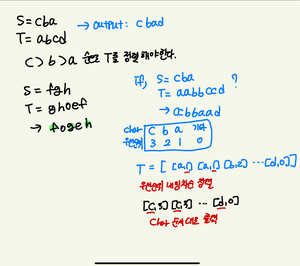 S = cba
→ output: cbad
T = abcd
C > b > a 순으로 T를 정렬해야한다.
S = fgh
T = ghoef
→ fogeh
if, S = cba
T = aabbccd ?
→ ccbbaad
char c b a 기타
우선순위 3 2 1 0
T = [ [a,1] [a,1] [b,2] … [d,0]
우선순위 내림차순 정렬
[c,3] [c,3] … [d,0]
char 순서대로 출력